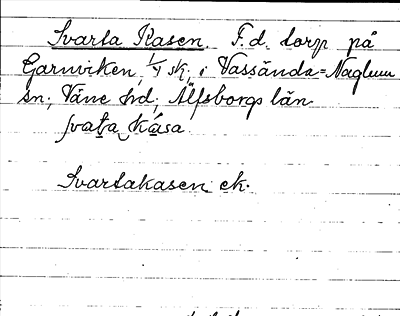 Svarta Kasen. F.d. torp på
Garnviken 1/4 sk. i Vassända=Naglum
sn; Väne hd; Älfsborgs län
svata kása
Svartakasen ek.